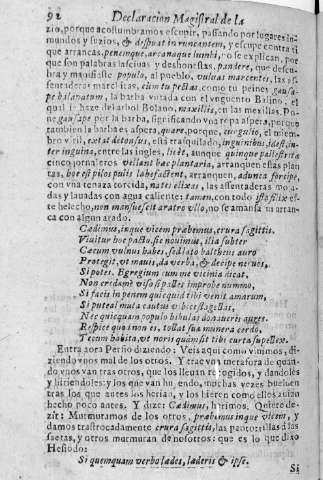 92 Declaracion Magistral de la
zio, porque acostumbramos escupir, passando por lugares in-
mundos y suzios, & despuat in runcentem, y escupe contra ti
que arrancas, penemque, arcanaque lumbi, no se explican, por
que son palabras lasciuas y deshonestas, pandere, que descu-
bra y manifieste populo, al pueblo, vuluas marcentes, las as-
sentaderas marchitas, cum tu pectas, como tu peines gausa-
pe balanatum, la barba vntada con el vnguento Balino, el
qual se haze del arbol Balano, maxillis, en las mexillas. Po-
ne gausape por la barba, significando vna ropa aspera, porque
tambien la barba es aspera, quare, porque, curgulio, el miem-
bro viril, extat detonsus, està trasquilado, inguinibus, idest, in-
ter inguina, entre las ingles, licet, aunque quinque palæstritæ
cinco jornaleros vellant hæc plantaria, arranquen estas plan
tas, hoc est pilos pulli labefactent, arranquen, adunca forcipe,
con vna tenaza torcida, nates elixas, las assentaderas mo
das y lauadas con agua caliente: tamen, con todo ista filix es-
te helecho, non mansuescit aratro vllo, no se amansa ni arran-
ca con algun arado.
Cædimus, inque vicem præbemus, crura sagittis.
Viuitur hoc pacto: sic nouimus, ilia subter
Cæcum vulnus habes, sed lato baltheus auro
Protegit, vt mauis, da verba, & decipe neruos,
Si potes. Egregium cum me vicinia dicat,
Non credam? viso si palles improbe nummo,
Si facis in penem quicquid tibi venit amarum,
Si puteal multa cautus vibice flagellas,
Nec quicquam populo bibulas donaueris aures.
Respice quod non es, tollat sua munera cerdo,
Tecum habita, vt noris quam sit tibi curta supellex.
Entra aora Persio diziendo: Veis aqui como viuimos, di-
ziendo vnos mal de los otros. Y trae vna metafora de quan-
do vnos van tras otros, que los lleuan cogidos, y dandoles
y hiriendoles: y los que van huyendo, muchas vezes bueluen
tras los que antes los herian, y los hieren como ellos auian
hecho poco antes. Y dize: Cædimus, herimos. Quiere de-
zir: Murmuramos de los otros, præbemus inque vicem, y
damos trastrocadamente crura sagittis, las pantorrillas à las
saetas, y otros murmuran de nosotros: que es lo que dixo
Hesiodo:
Si quemquam verbo lædes, læderis & ipse.
Si